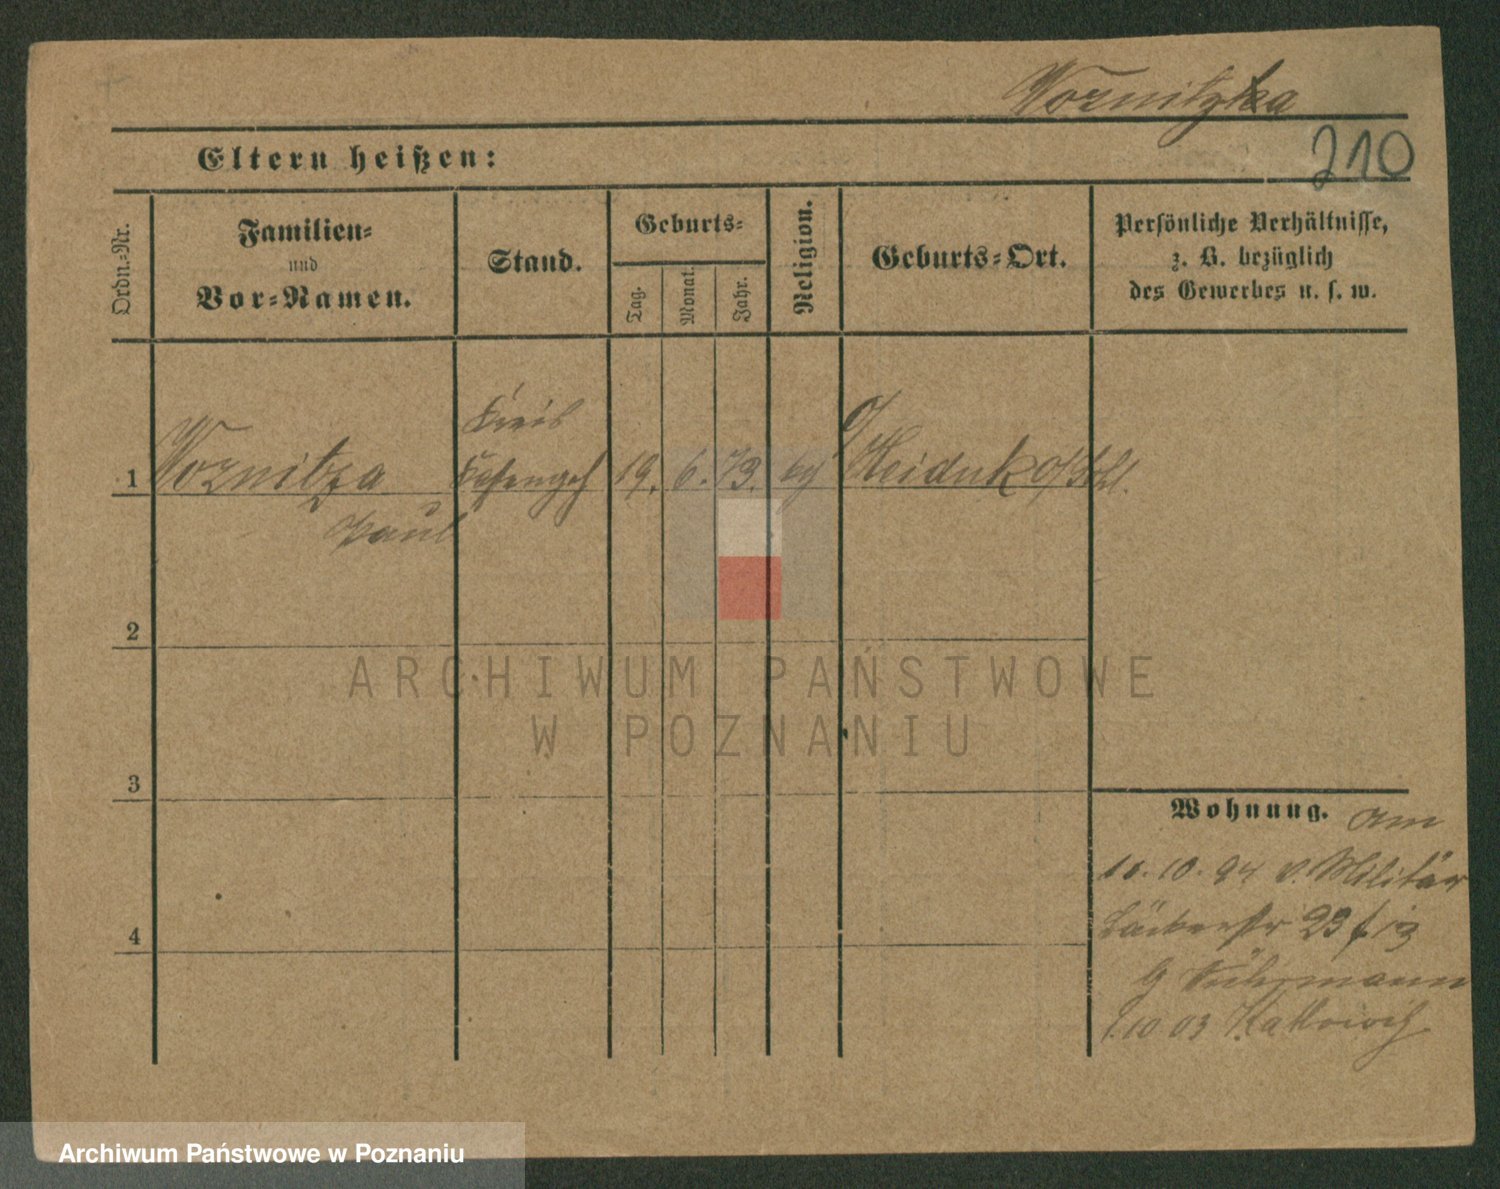 Woznitzka
210
Eltern heißen:
Ordn.-Nr.
Familien-
und
Vor-Namen.
Stand.
Geburts-
Tag.
Monat.
Jahr.
Religion.
Geburts-Ort.
Persönliche Verhältnisse,
z. B. bezüglich
des Gewerbes u. s. w.
Kreis
1 Woznitza 19. 6. 73. Heiduk o/Schl.
Paul
2
3
4
Wohnung. am
11. 10. 94 v. Militär
Bäckerstr 23 13
1.10 03 Kattowitz
ARCHIWUM PAŃSTWOWE
W POZNANIU
Archiwum Państwowe w Poznaniu